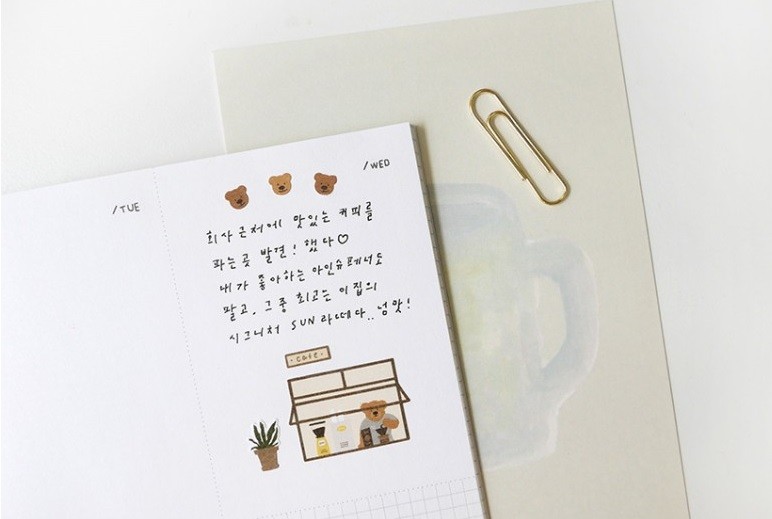 /TUE
/WED
회사 근처에 맛있는 커피를
파는곳 발견! 했다♡
내가 좋아하는 아인슈페너도
팔고, 그중 최고는 이집의
시그니처 SUN 라떼다.. 넘맛!
·cafe·